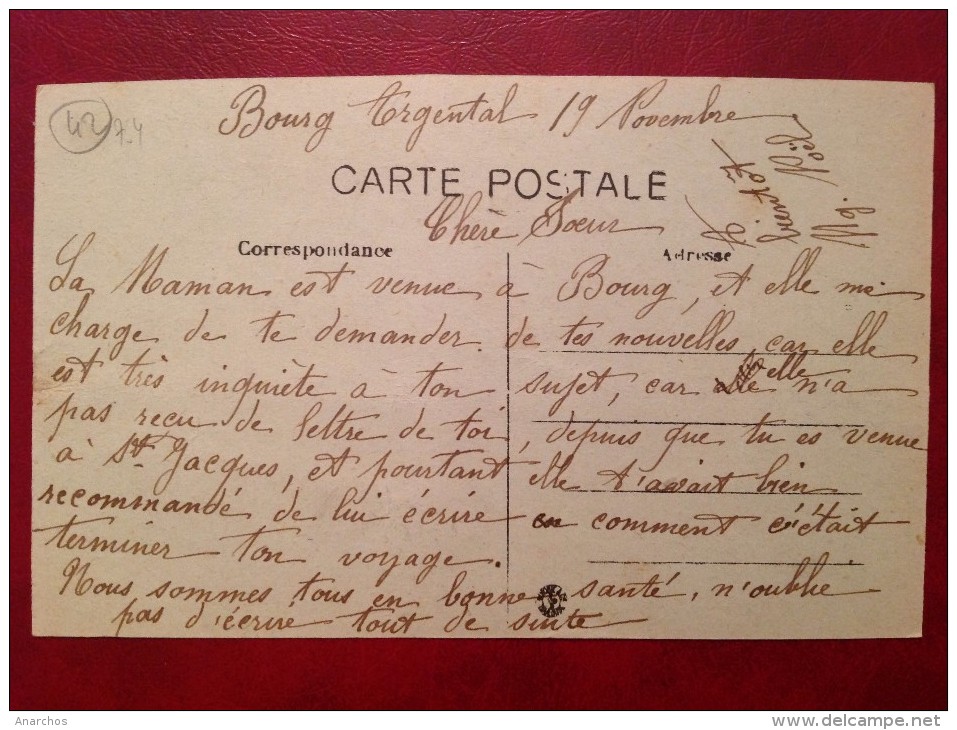 42
7.4
Bourg Argental 19 Novembre
CARTE POSTALE
Chère Soeur
Correspondance
Adresse
La Maman est venue à Bourg, et elle me
charge de te demander de tes nouvelles, car elle
est très inquiète à ton sujet, car elle n'a
pas reçu de lettre de toi, depuis que tu es venue
à St Jacques, et pourtant elle t'avait bien
recommandé de lui écrire comment c'était
terminer ton voyage.
Nous sommes tous en bonne santé, n'oublie
pas d'écrire tout de suite
A
bientôt
Anarchos
delcampe.net